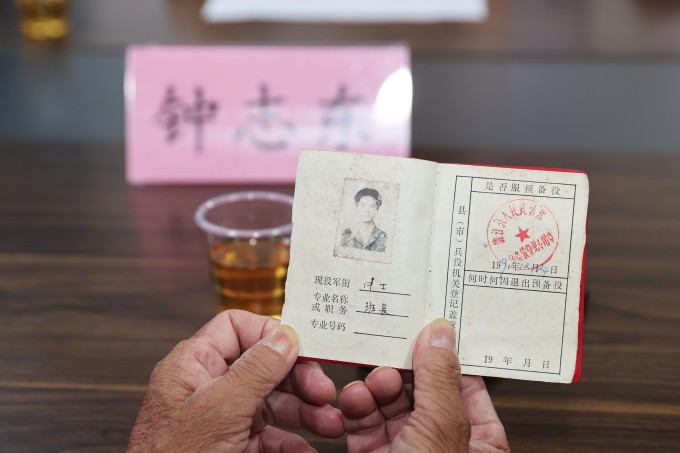 钟志东
现役军衔
专业名称
或职务 班长
专业号码
县(市)兵役机关登记盖章
是否服预备役
何时何因退出预备役
19 年 月 日